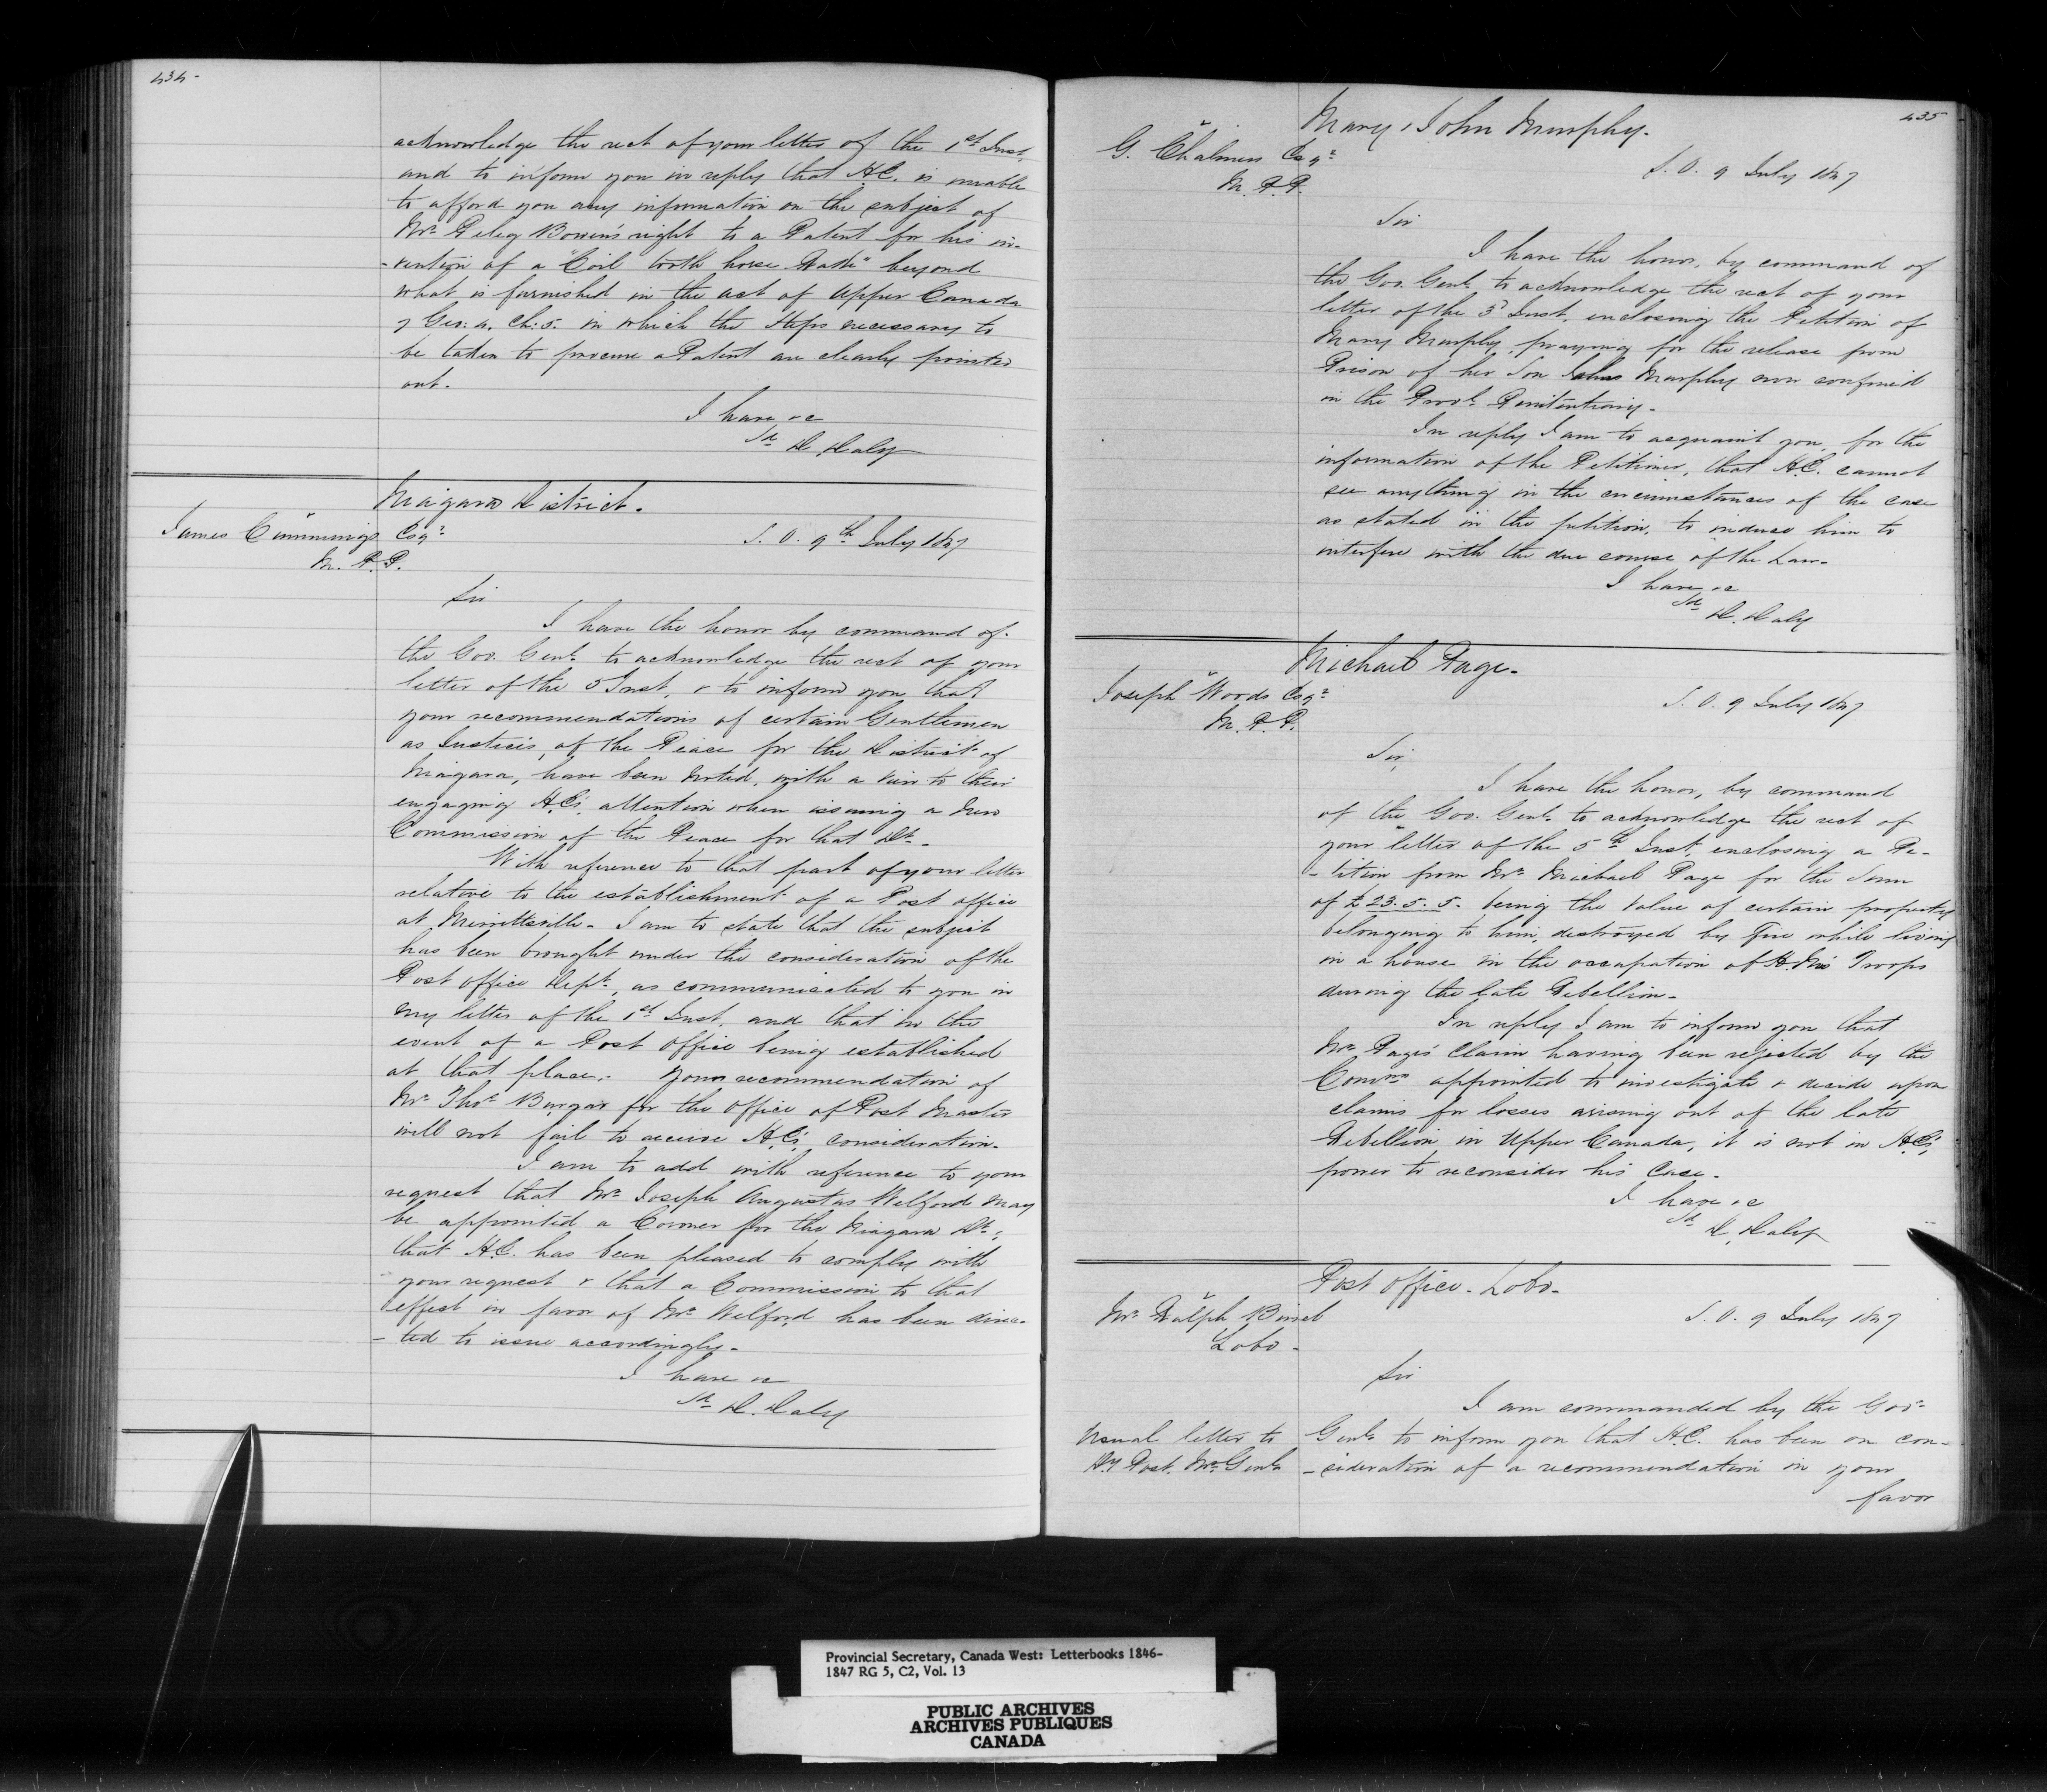 434-
acknowledge the rect of your letter of the 1st Inst,
and to inform you in reply that H.E. is unable
to afford you any information on the subject of
Mr. Peleg Bowen's right to a Patent for his in-
-vention of a "Coil tooth horse Rake" beyond
what is furnished in the act of Upper Canada
7 Geo: 4. Ch: 5. in which the steps necessary to
be taken to procure a Patent are clearly pointed
out.
I have &c
Sd D. Daly
Niagara District.
James Cummings Esqr
M. P. P.
S. O. 9th July 1847
Sir
I have the honor by command of
the Gov. Genl. to acknowledge the rect of your
letter of the 5 Inst, & to inform you that
your recommendations of certain Gentlemen
as Justices, of the Peace for the District of
Niagara, have been Noted, with a view to their
engaging H.E's. attention when issuing a New
Commission of the Peace for that Dt.
With reference to that part of your letter
relative to the establishment of a Post office
at Merrittsville. I am to state that the subject
has been brought under the consideration of the
Post office Dept., as communicated to you in
my letter of the 1st Inst, and that in the
event of a Post office being established
at that place. Your recommendation of
Mr. Thos. Burgar for the office of Post Master
will not fail to receive H.E's. consideration.
I am to add with reference to your
request that Mr. Joseph Augustus Welford may
be appointed a Coroner for the Niagara Dt.,
that H.E. has been pleased to comply with
your request & that a Commission to that
effect in favor of Mr. Welford has been direc-
-ted to issue accordingly.
I have &c
Sd D. Daly
435
Mary & John Murphy.
G. Chalmers Esqr
M. P. P.
S. O. 9 July 1847
Sir
I have the honor, by command of
the Gov. Genl. to acknowledge the rect of your
letter of the 5 Inst, enclosing the Petition of
Mary Murphy, praying for the release from
Prison of her Son John Murphy now confined
in the Provl. Penitentiary.
In reply I am to acquaint you, for the
information of the Petitioner, that H.E. cannot
see anything in the circumstances of the case
as stated in the petition, to induce him to
interfere with the due course of the Law.
I have &c
Sd D. Daly
Michael Page.
Joseph Woods Esqr
M. P. P.
S. O. 9 July 1847
Sir,
I have the honor, by command
of the Gov. Genl. to acknowledge the rect of
your letter of the 5th Inst, enclosing a Pe-
-tition from Mr. Michael Page for the Sum
of £23. 5. 5. being the value of certain property
belonging to him, destroyed by Fire while living
in a house in the occupation of H.M's Troops
during the late Rebellion.
In reply I am to inform you that
Mr. Page's Claim having been rejected by the
Comrs. appointed to investigate & decide upon
claims for losses arising out of the late
Rebellion in Upper Canada, it is not in H.E's.
power to reconsider his Case.
I have &c
Sd D. Daly
Post office. Lobo.
Mr. Ralph
Lobo.
S. O. 9 July 1847
Sir
I am commanded by the Gov.
Usual letter to
Dy Post. Mr. Genl.
Genl. to inform you that H.E. has been on con-
-sideration of a recommendation in your
favor
Provincial Secretary, Canada West: Letterbooks 1846-
1847 RG 5, C2, Vol. 13
PUBLIC ARCHIVES
ARCHIVES PUBLIQUES
CANADA